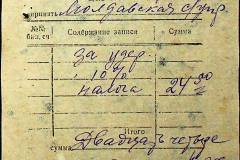 принять Молдавская
№№ бил. сч. Содержание записи Сумма
за удер.
10%
налога 24 00
Итого
сумма Двадцать четыре